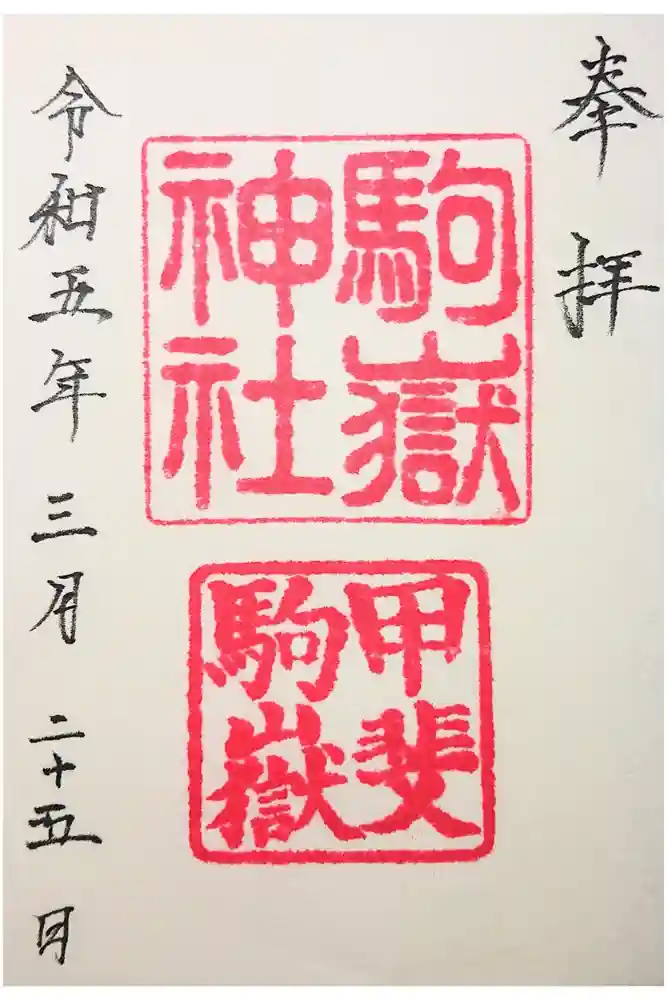 奉拝
駒嶽
神社
甲斐
駒嶽
令和五年三月二十五日